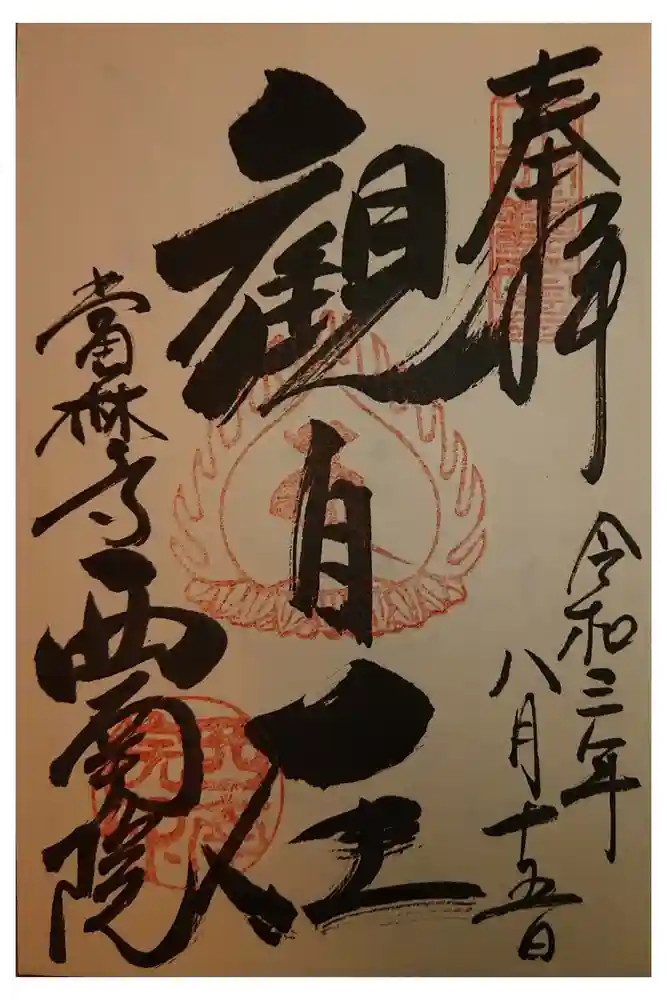 奉拝
令和三年
八月十五日
観自在
當麻寺
西南院